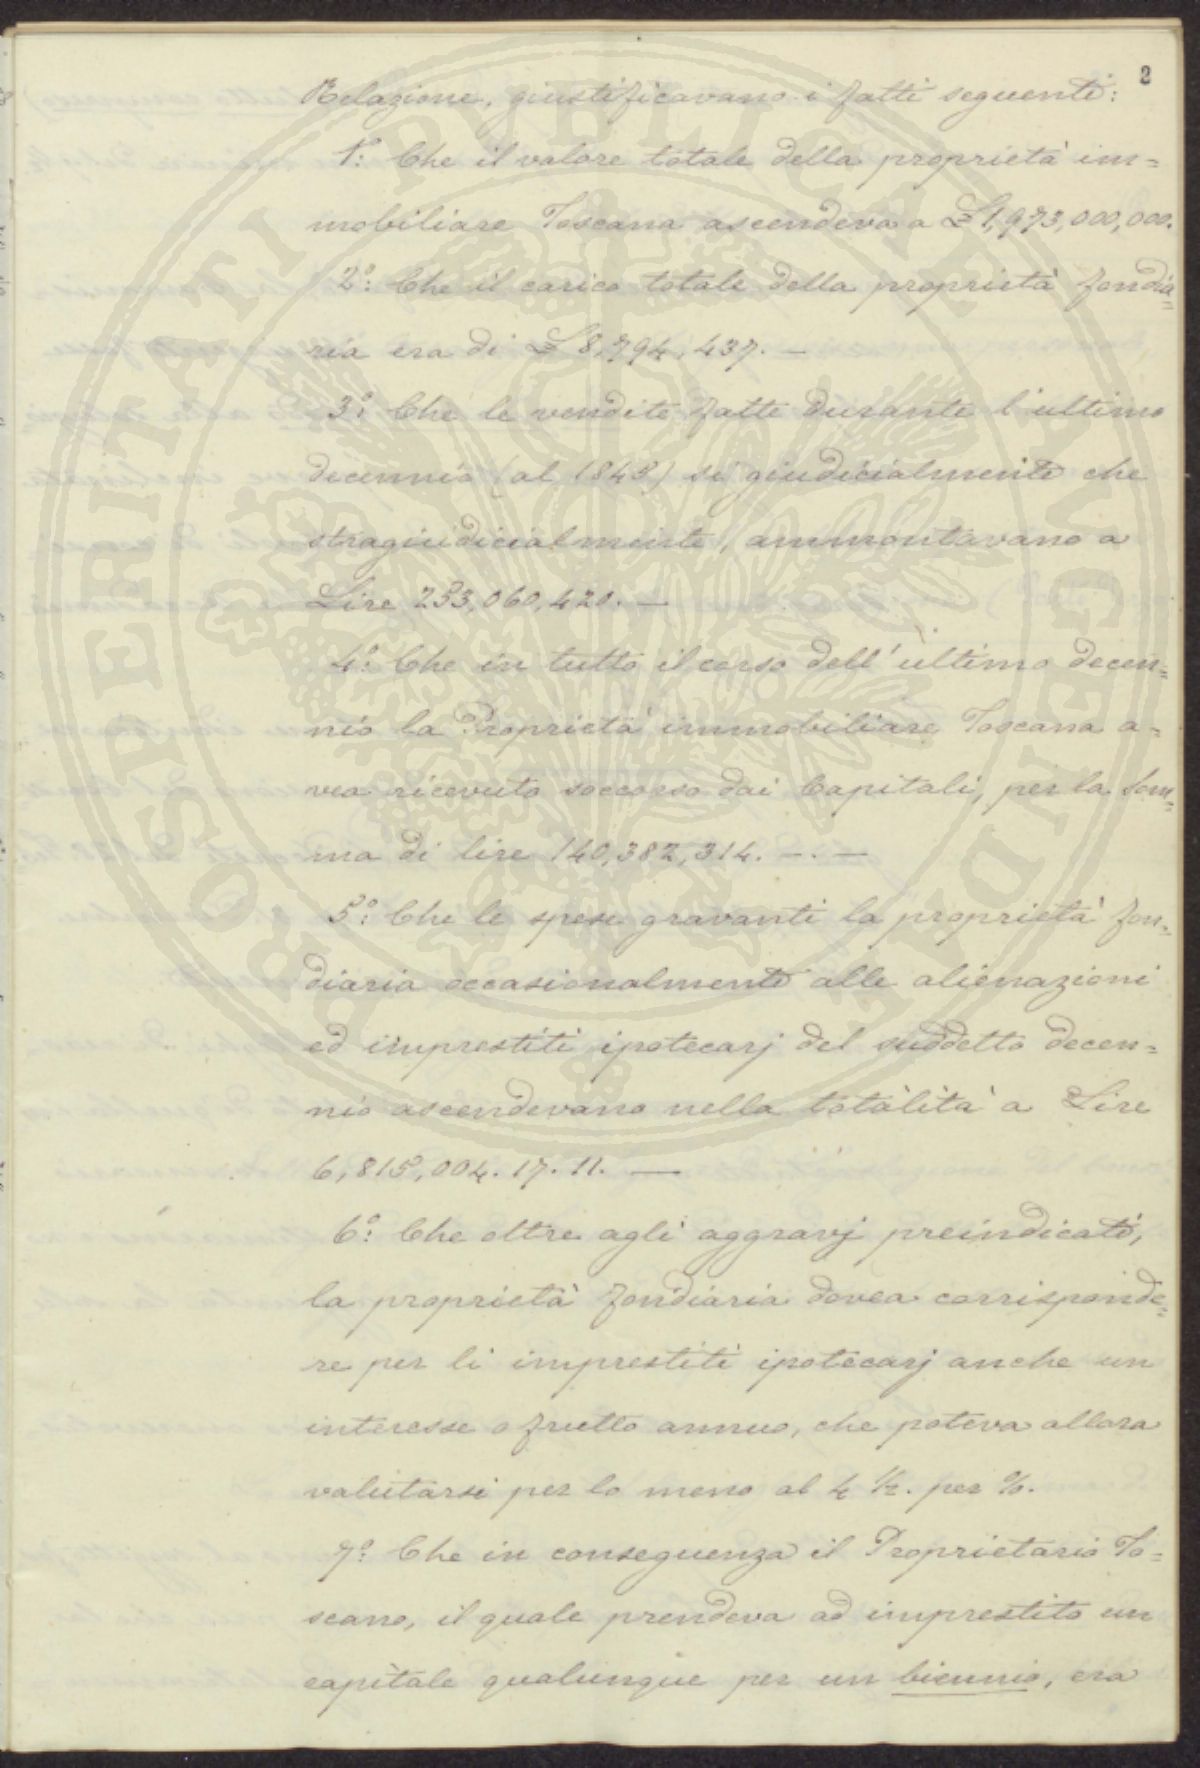 2
Relazione, giustificavano i fatti seguenti:
1º: Che il valore totale della proprietà im=
mobiliare Toscana ascendeva a £ 1,973,000,000.
2º: Che il carico totale della proprietà fondia=
ria era di £ 8,794,437. —
3º: Che le vendite fatte durante l'ultimo
decennio (al 1845) sì giudicialmente che
stragiudicialmente, ammontavano a
Lire 253,060,420. —
4º: Che in tutto il corso dell'ultimo decen=
nio la Proprietà immobiliare Toscana a=
vea ricevuto soccorso dai Capitali, per la Som=
ma di lire 140,382,314. —. —
5º: Che le spese gravanti la proprietà fon=
diaria occasionalmente alle alienazioni
ed imprestiti ipotecarj del suddetto decen=
nio ascendevano nella totalità a Lire
6,815,004. 17. 11. —
6º: Che oltre agli aggravj preindicati,
la proprietà fondiaria dovea corrisponde=
re per li imprestiti ipotecarj anche un
interesse o frutto annuo, che poteva allora
valutarsi per lo meno al 4 ½. per %.
7º: Che in conseguenza il Proprietario To=
scano, il quale prendeva ad imprestito un
capitale qualunque per un biennio, era
PROSPERITATI PUBLICAE AUGENDAE